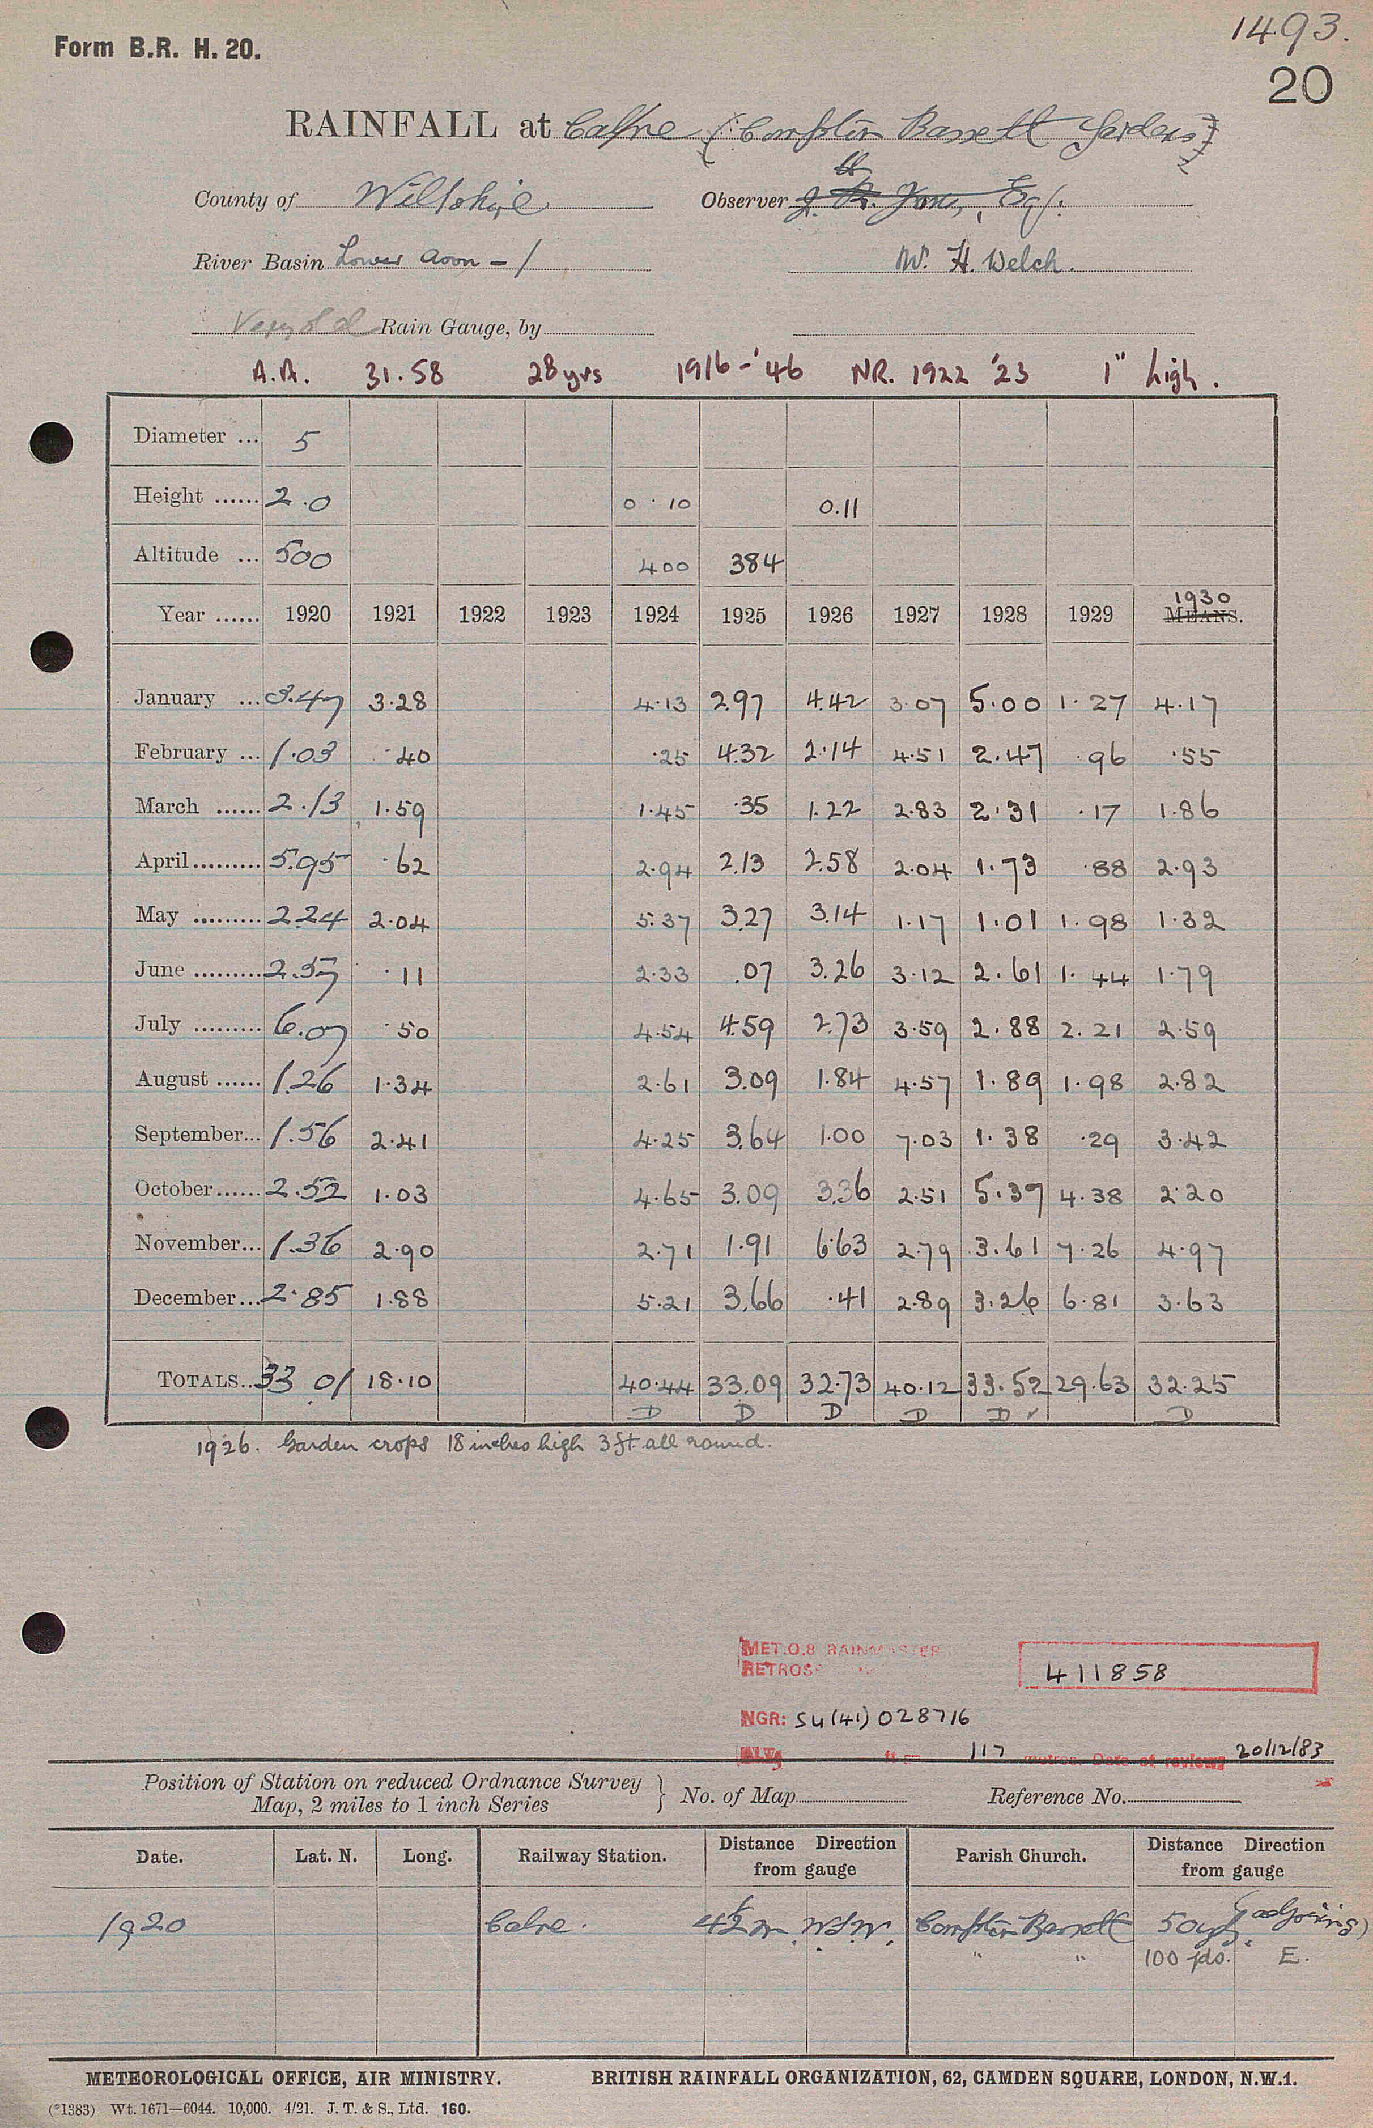 1493.
Form B.R. H. 20.
20
RAINFALL at Calne (Compton Bassett Gardens)
County of Wiltshire Observer J. R. Jones, Esq.
River Basin Lower Avon - 1 W. H. Welch.
Very old Rain Gauge, by
A.A. 31.58 28 yrs 1916-'46 NR. 1922 '23 1" high.
Diameter ... 5
Height ...... 2.0 0.10 0.11
Altitude ... 500 400 384
Year ...... 1920 1921 1922 1923 1924 1925 1926 1927 1928 1929 MEANS. 1930
January ... 3.47 3.28 4.13 2.97 4.42 3.07 5.00 1.27 4.17
February ... 1.03 .40 .25 4.32 2.14 4.51 2.47 .96 .55
March ...... 2.13 1.59 1.45 .35 1.22 2.83 2.31 .17 1.86
April ......... 5.95 .62 2.94 2.13 2.58 2.04 1.73 .88 2.93
May ......... 2.24 2.04 5.37 3.27 3.14 1.17 1.01 1.98 1.32
June ......... 2.57 .11 2.33 .07 3.26 3.12 2.61 1.44 1.79
July ......... 6.07 .50 4.54 4.59 2.73 3.59 2.88 2.21 2.59
August ...... 1.26 1.34 2.61 3.09 1.84 4.57 1.89 1.98 2.82
September... 1.56 2.41 4.25 3.64 1.00 7.03 1.38 .29 3.42
October ...... 2.52 1.03 4.65 3.09 3.36 2.51 5.37 4.38 2.20
November... 1.36 2.90 2.71 1.91 6.63 2.79 3.61 7.26 4.97
December... 2.85 1.88 5.21 3.66 .41 2.89 3.26 6.81 3.63
TOTALS.. 33 01 18.10 40.44 33.09 32.73 40.12 33.52 29.63 32.25
D D D D D ✓ D
1926. Garden crops 18 inches high 3 ft all round.
MET.O.8 RAINMASTER
411858
NGR: SU (41) 028716
ft = 117 metres Date of review 20/12/83
Position of Station on reduced Ordnance Survey Map, 2 miles to 1 inch Series } No. of Map Reference No.
Date. Lat. N. Long. Railway Station. Distance Direction from gauge Parish Church. Distance Direction from gauge
1920 Calne. 4½ m. W.S.W. Compton Bassett 50 yds. (adjoining)
" " 100 yds. E.
METEOROLOGICAL OFFICE, AIR MINISTRY. BRITISH RAINFALL ORGANIZATION, 62, CAMDEN SQUARE, LONDON, N.W.1.
(*1383) Wt. 1671—6044. 10,000. 4/21. J. T. & S., Ltd. 160.